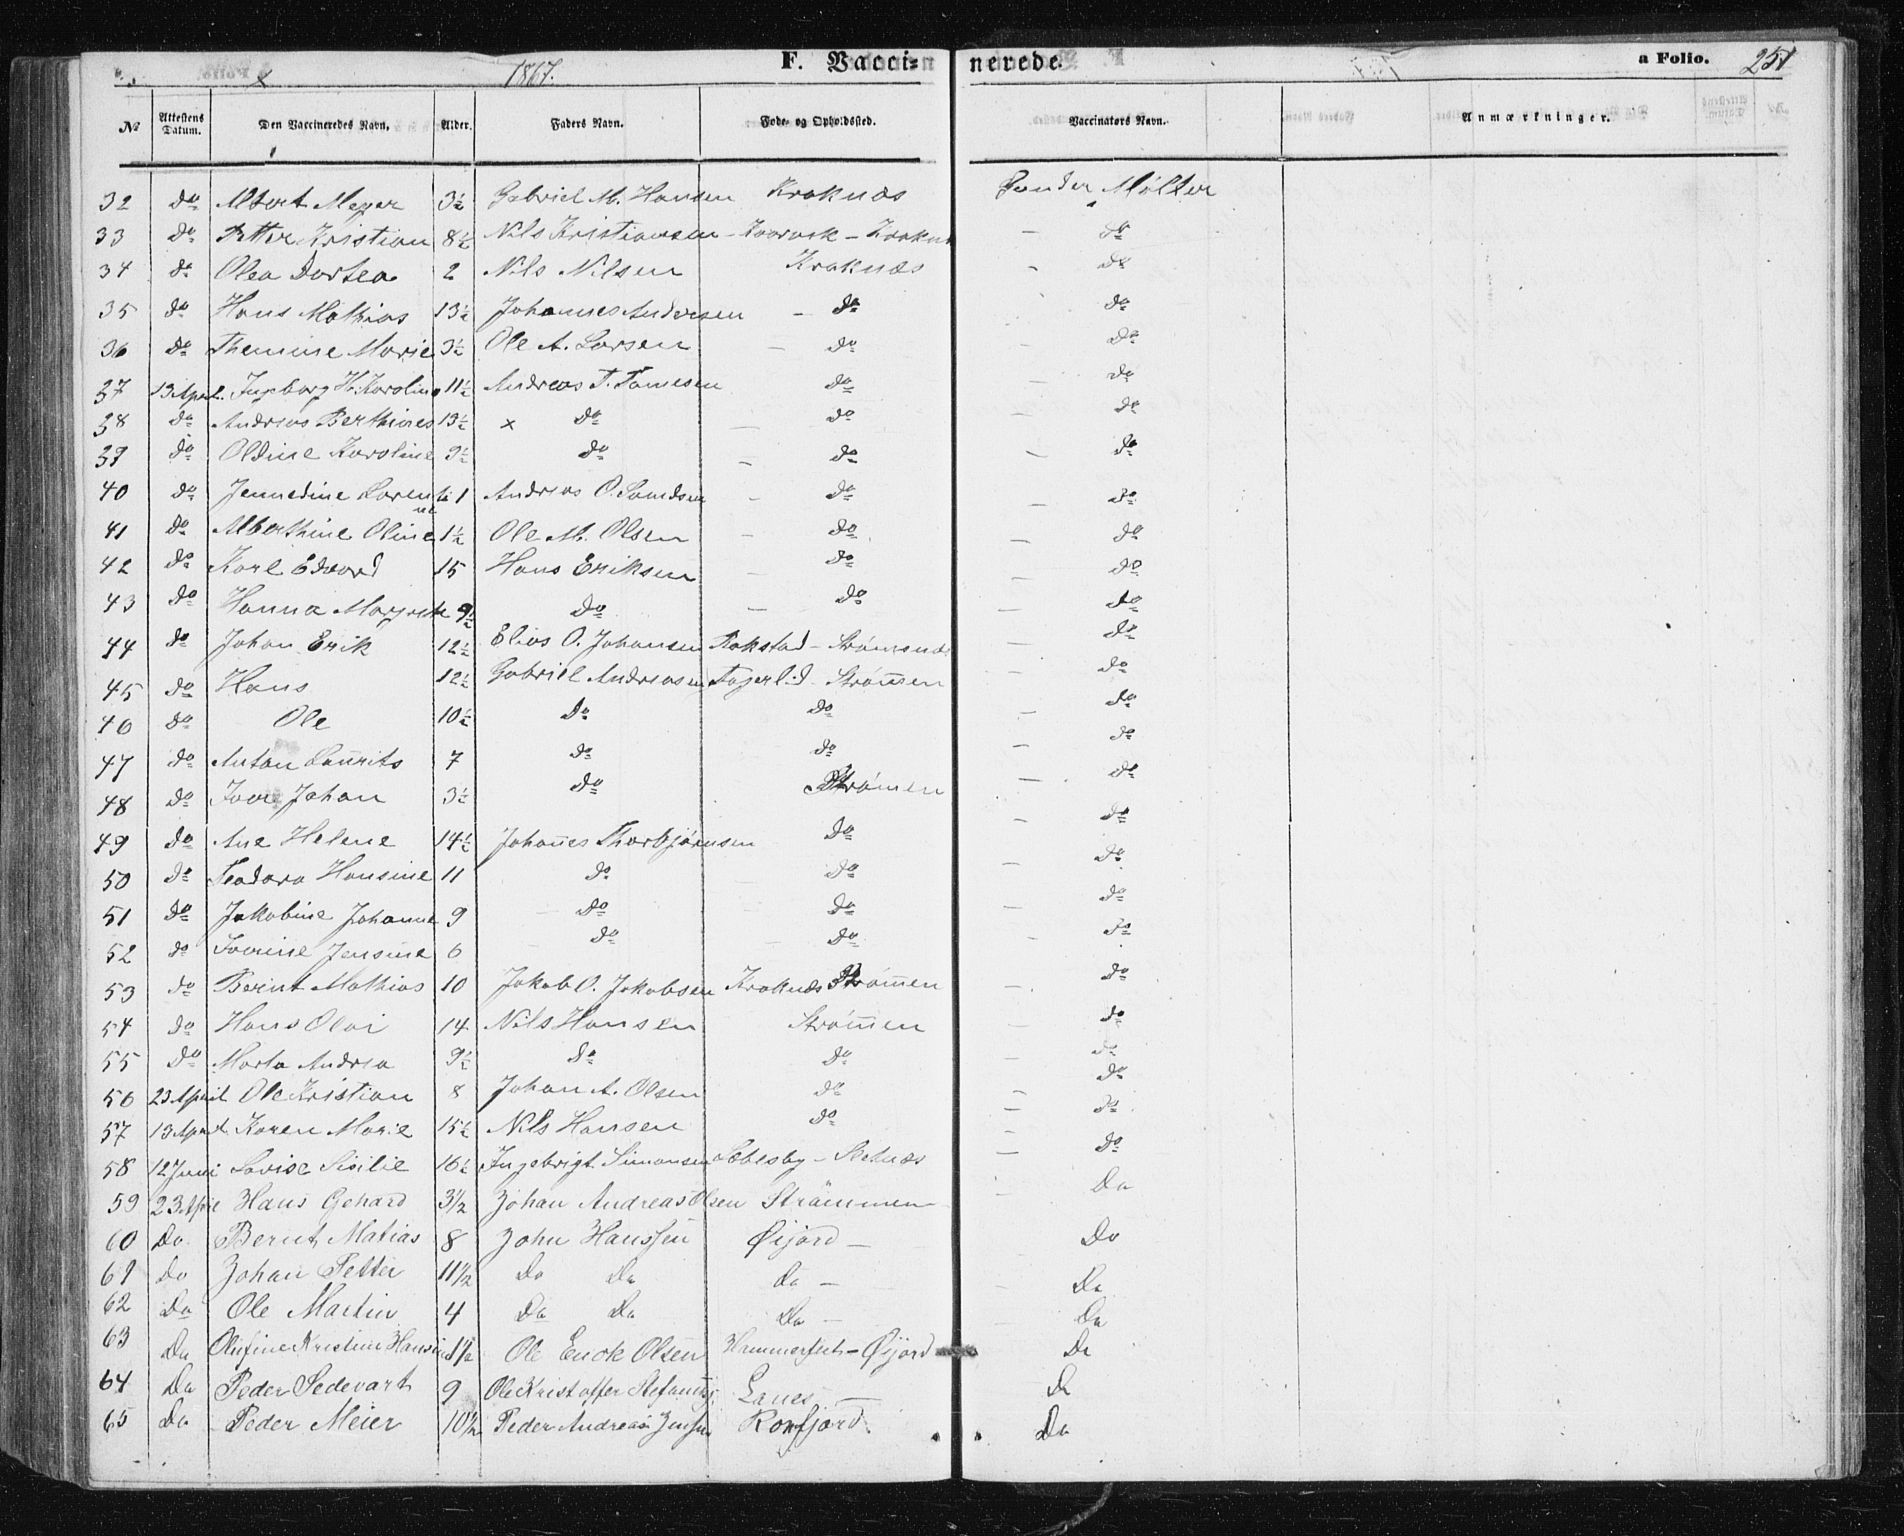 1867.
F. Vacci- nerede.
a Folio. 251
№ Attestens Datum. Den Vaccineredes Navn. Alder. Faders Navn. Føde- og Opholdssted. Vaccinators Navn. Anmærkninger.
32 do Albert Meyer 3½ Gabriel M. Hansen Kraknæs Peder Mølter
33 do Petter Kristian 8½ Nils Kristiansen - - do
34 do Olea Dortea 2 Nils Nilsen Kraknæs - do
35 do Hans Mathias 13½ Johannes Andersen - do do
36 do Themine Marie 3½ Ole A. Larsen - do - do
37 13 April Ingeborg H. Karoline 11½ Andreas T. Tomesen do - do
38 do Andreas Berthines 13½ x do - do - do
39 do Oldine Karoline 9½ do - do - do
40 do Jennedine Lorentine 1 Andreas O. - do - do
41 do Alberthine Oline 1½ Ole M. Olsen - do - do
42 do Karl Edvard 15 Hans Eriksen - do - do
43 do Hanna Margrete 9½ do - do - do
44 do Johan Erik 12½ Elias O. Johansen Rakstad - Strømsnæs - do
45 do Hans 12½ Gabriel Andreasen Fagerlid - Strømen - do
46 do Ole 10½ do do - do
47 do Anton Laurits 7 do do - do
48 do Iver Johan 3½ do Strømen - do
49 do Ane Helene 14½ Johanes Thorbjørnsen do - do
50 do Teodora Hansine 11 do - do - do
51 do Jakobine Johanne 9 - do - do - do
52 do Jensine 6 - do - do - do
53 do Berint Mathias 10 Jakob O. Jakobsen Kraknæs Strømen - do
54 do Hans Olai 14 Nils Hansen Strømen - do
55 do Marta Andrea 9½ do do - do
56 23 April Ole Kristian 8 Johan A. Olsen do - do
57 13 April Karen Marie 15½ Nils Hansen do - do
58 12 Juni Lovise Sisilie 16½ Ingebrigt Simonsen Lebesby - - do
59 23 April Hans Gehard 3½ Johan Andreas Olsen Strömmen - Do
60 Do Bernt Matias 8 John Hanssen Øijord - Do
61 Do Johan Petter 11½ Do Do Do - Do
62 Do Ole Martin 4 Do Do Do - Do
63 Do Olufine Kristine Hansine 1½ Ole Enok Olsen Hammerfest - Øijord Do
64 Do Peder Sedevart 9 Ole Kristoffer Lanes - Do
65 Do Peder Meier 10½ Peder Andreas Jensen Do